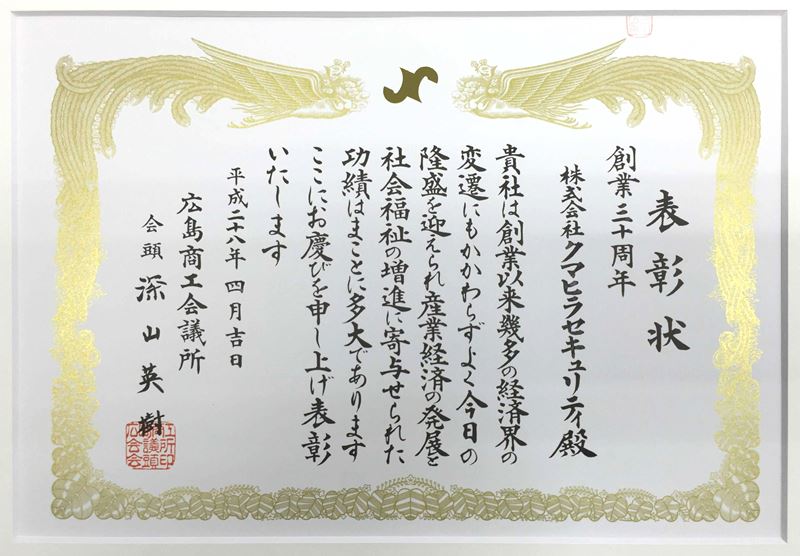 表彰状
創業三十周年
株式会社クマヒラセキュリティ殿
貴社は創業以来幾多の経済界の
変遷にもかかわらずよく今日の
隆盛を迎えられ産業経済の発展と
社会福祉の増進に寄与せられた
功績はまことに多大であります
ここにお慶びを申し上げ表彰
いたします
平成二十八年四月吉日
広島商工会議所
会頭 深山英樹